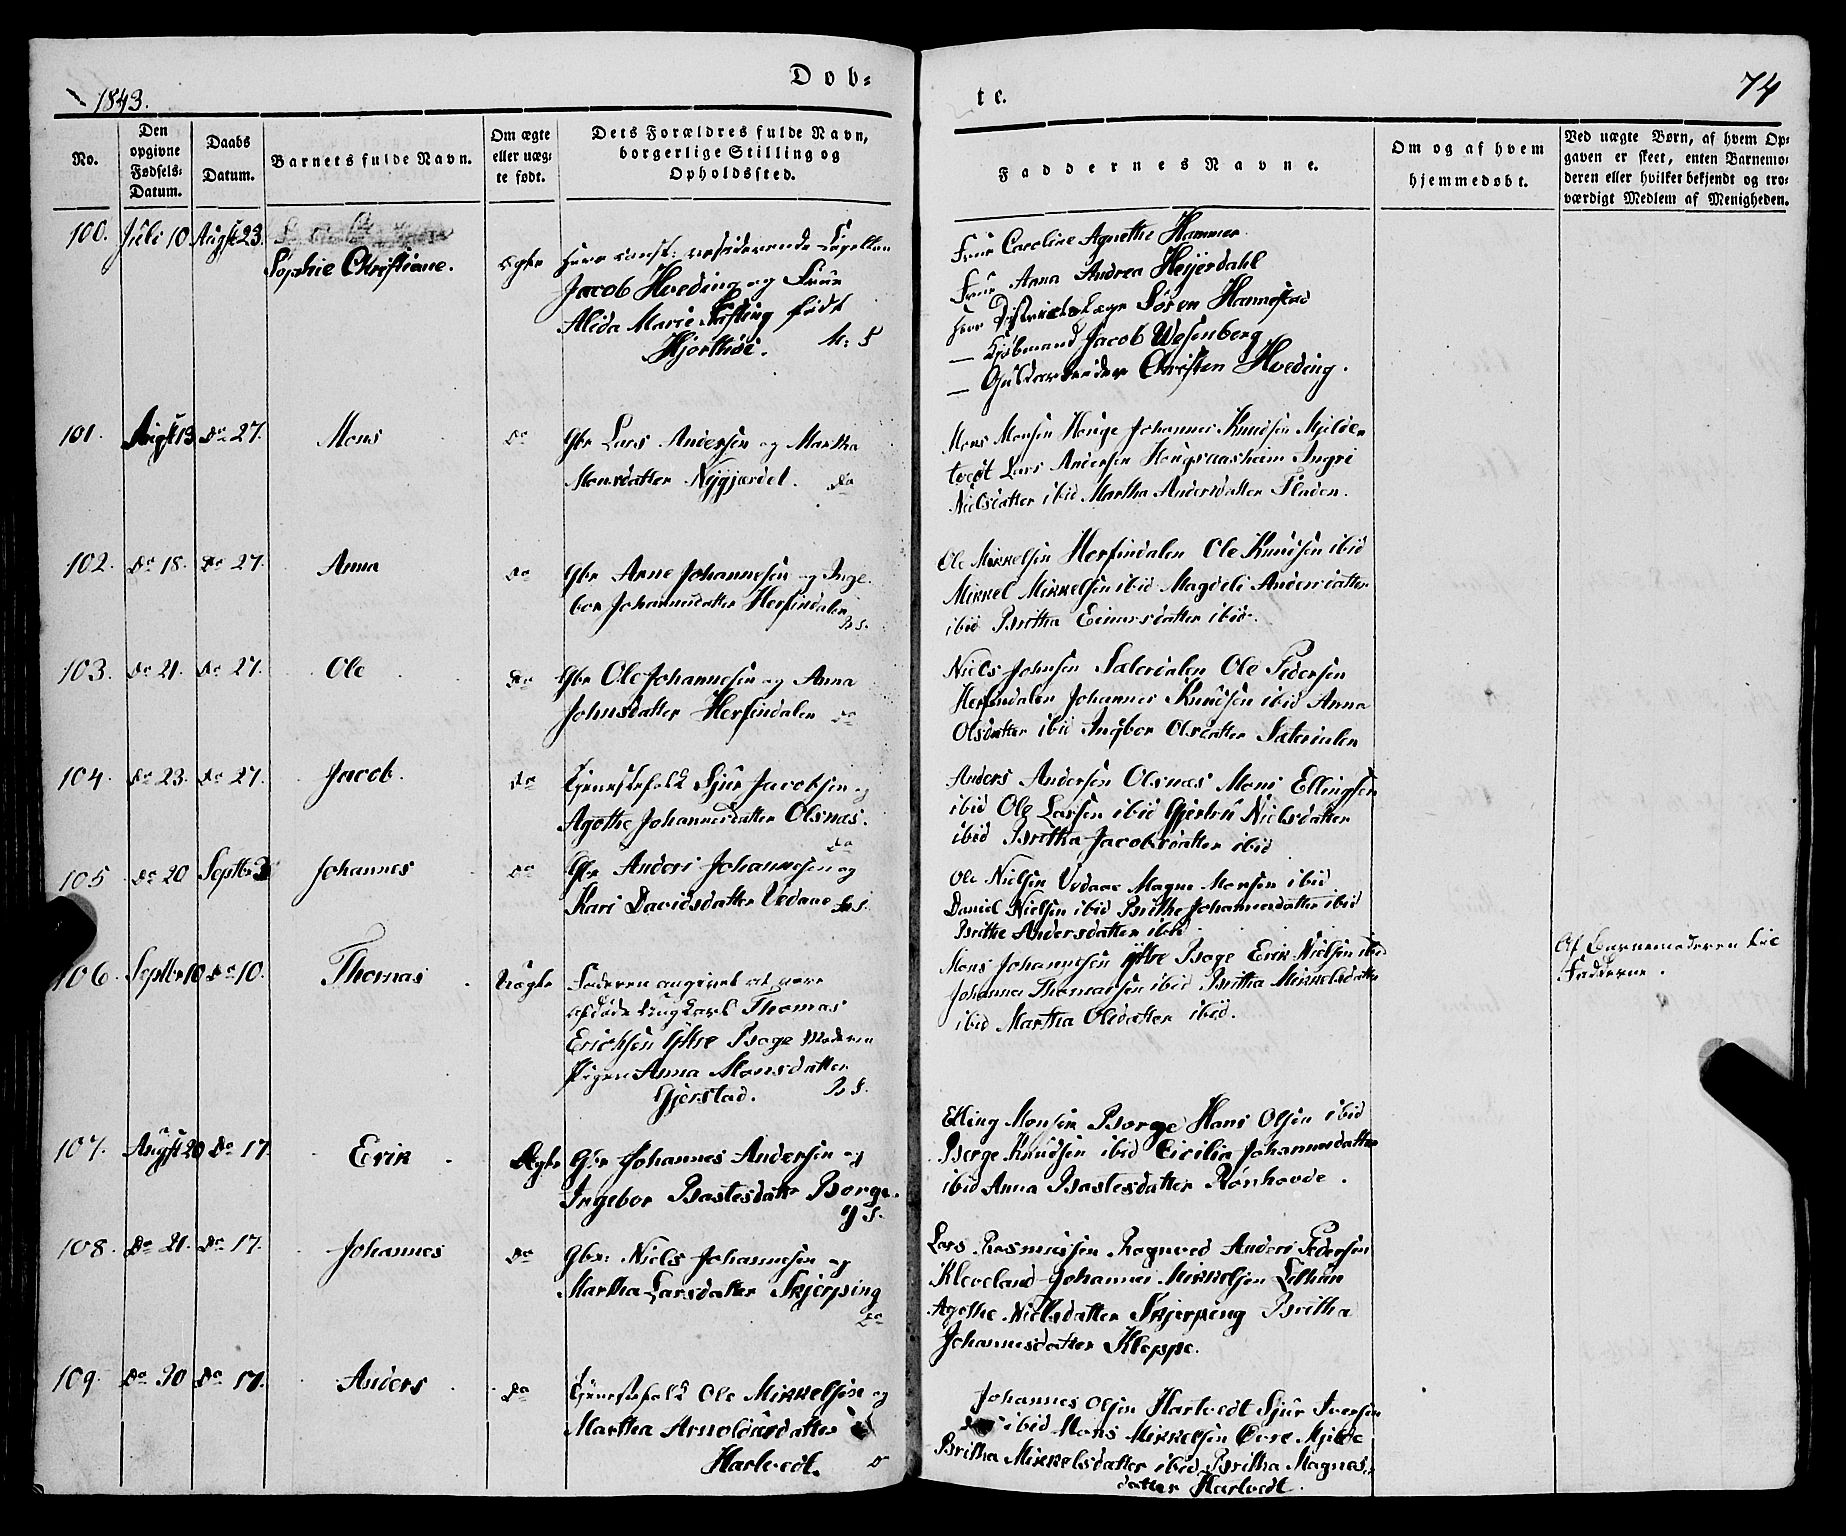 1843.
Døb=
te.
74
No.
Den opgivne Fødsels= Datum.
Daabs Datum.
Barnets fulde Navn.
Om ægte eller uæg= te født.
Dets Forældres fulde Navn, borgerlige Stilling og Opholdssted.
Faddernes Navne.
Om og af hvem hjemmedøbt.
Ved uægte Børn, af hvem Op= gaven er skeet, enten Barnemo= deren eller hvilket bekjendt og tro= værdigt Medlem af Menigheden.
100. Juli 10 Augst 23.
Sophie Christiane. ægte
Herr const: residerende Capellan
Jacob Hveding og Frue
Alida Marie født
Frue Caroline Agnethe Hammer
Frue Anna Andrea Heyerdahl
Herr Districtslæge Søren Hannestad
— Kjøbmand Jacob Wesenberg
— Christen Hveding.
101. Augst 13 Do 27. Mons Do
Gbr Lars Andersen og Martha
Monsdatter Nygjærdet. Do
Mons Monsen Houge Johannes Knudsen Mjelde
tvedt Lars Andersen Ingri
Nielsdatter ibid Martha Andersdatter Fladen.
102. Do 18. Do 27. Anna Do
Gbr Arne Johannesen og Inge
bor Johannesdatter Herfindalen
Ole Mikkelsen Herfindalen Ole Knudsen ibid
Mikkel Mikkelsen ibid Magdeli Andersdatter
ibid Britha Einarsdatter ibid.
103. Do 21. Do 27. Ole Do
Gbr Ole Johannesen og Anna
Johnsdatter Herfindalen Do
Niels Johnsen Sæterdalen Ole Pedersen
Herfindalen Johannes Knudsen ibid Anna
Olsdatter ibid Ingbor Olsdatter Sæterdalen
104. Do 23. Do 27. Jacob. Do
Tjenestefolk Sjur Jacobsen og
Agothe Johannesdatter Olsnæs.
Do
Anders Andersen Olsnæs Mons Ellingsen
ibid Ole Larsen ibid Gjertrü Nielsdatter
ibid Britha Jacobsdatter ibid
105 Do 20 Septbr 3 Johannes Do
Gbr Anders Johannesen og
Kari Davidsdatter Vedaae
Ole Nielsen Vedaae Magne Monsen ibid
Daniel Nielsen ibid Brithe Johannesdatter ibid
Brithe Andersdatter ibid
106. Septbr 10 Do 10. Thomas Uægte
Faderen angivet at være
afdøde Ungkarl Thomas
Erichsen Ytre Boge Moderen
Pigen Anna Monsdatter
Gjerstad.
Mons Johannesen Ytre Boge Erik Nielsen ibid
Johannes Thomassen ibid Britha Mikkelsdatter
ibid Martha Olsdatter ibid.
Af Barnemoderen
Fadderne.
107. Augst 20 Do 17. Erik Ægte
Gbr Johannes Andersen og
Ingebor Bastesdatter Borge.
Elling Monsen Borge Hans Olsen ibid
Børge Knudsen ibid Cicilia Johannesdatter
ibid Anna Bastesdatter Rønhovde.
108. Do 21. Do 17. Johannes Do
Gbr: Niels Johannesen og
Martha Larsdatter Skjerping
Do
Lars Rasmussen Anders Pedersen
Kleveland Johannes Mikkelsen
Agothe Nielsdatter Skjerping Britha
Johannesdatter Kleppe.
109. Do 20 Do 17. Anders Do
Tjenestefolk Ole Mikkelsen og
Martha Arnoldusdatter
Hartvedt.
Johannes Olsen Hartvedt Sjur Iversen
ibid Mons Mikkelsen Mjelde
Britha Mikkelsdatter ibid Britha Magnes=
datter Hartvedt.